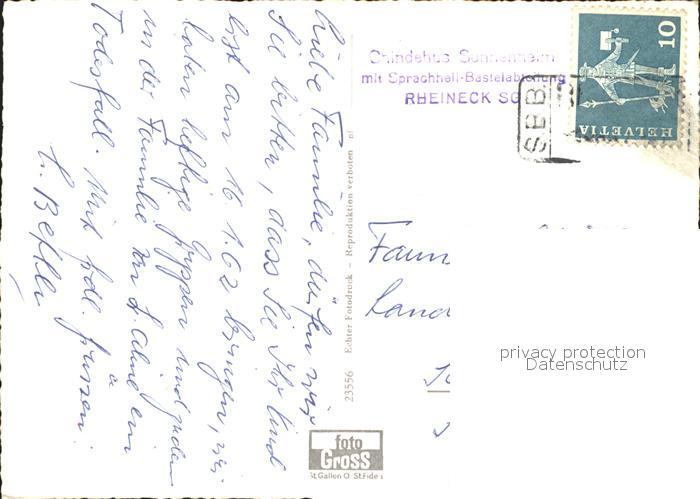 Liebe Familie, dürfen wir
Sie bitten, dass Sie Ihr Kind
erst am 16.1.62 bringen, wir
haben heftige Grippen und zudem
in der Familie
Todesfall. Mit frdl. Grüssen
23556 Echter Fotodruck – Reproduktion verboten
foto
GROSS
St.Gallen O St.Fiden
Chindehus Sunnenheim
mit Sprachheil-Bastelabteilung
RHEINECK SG
SBB
HELVETIA
10
Fam
Land
privacy protection
Datenschutz